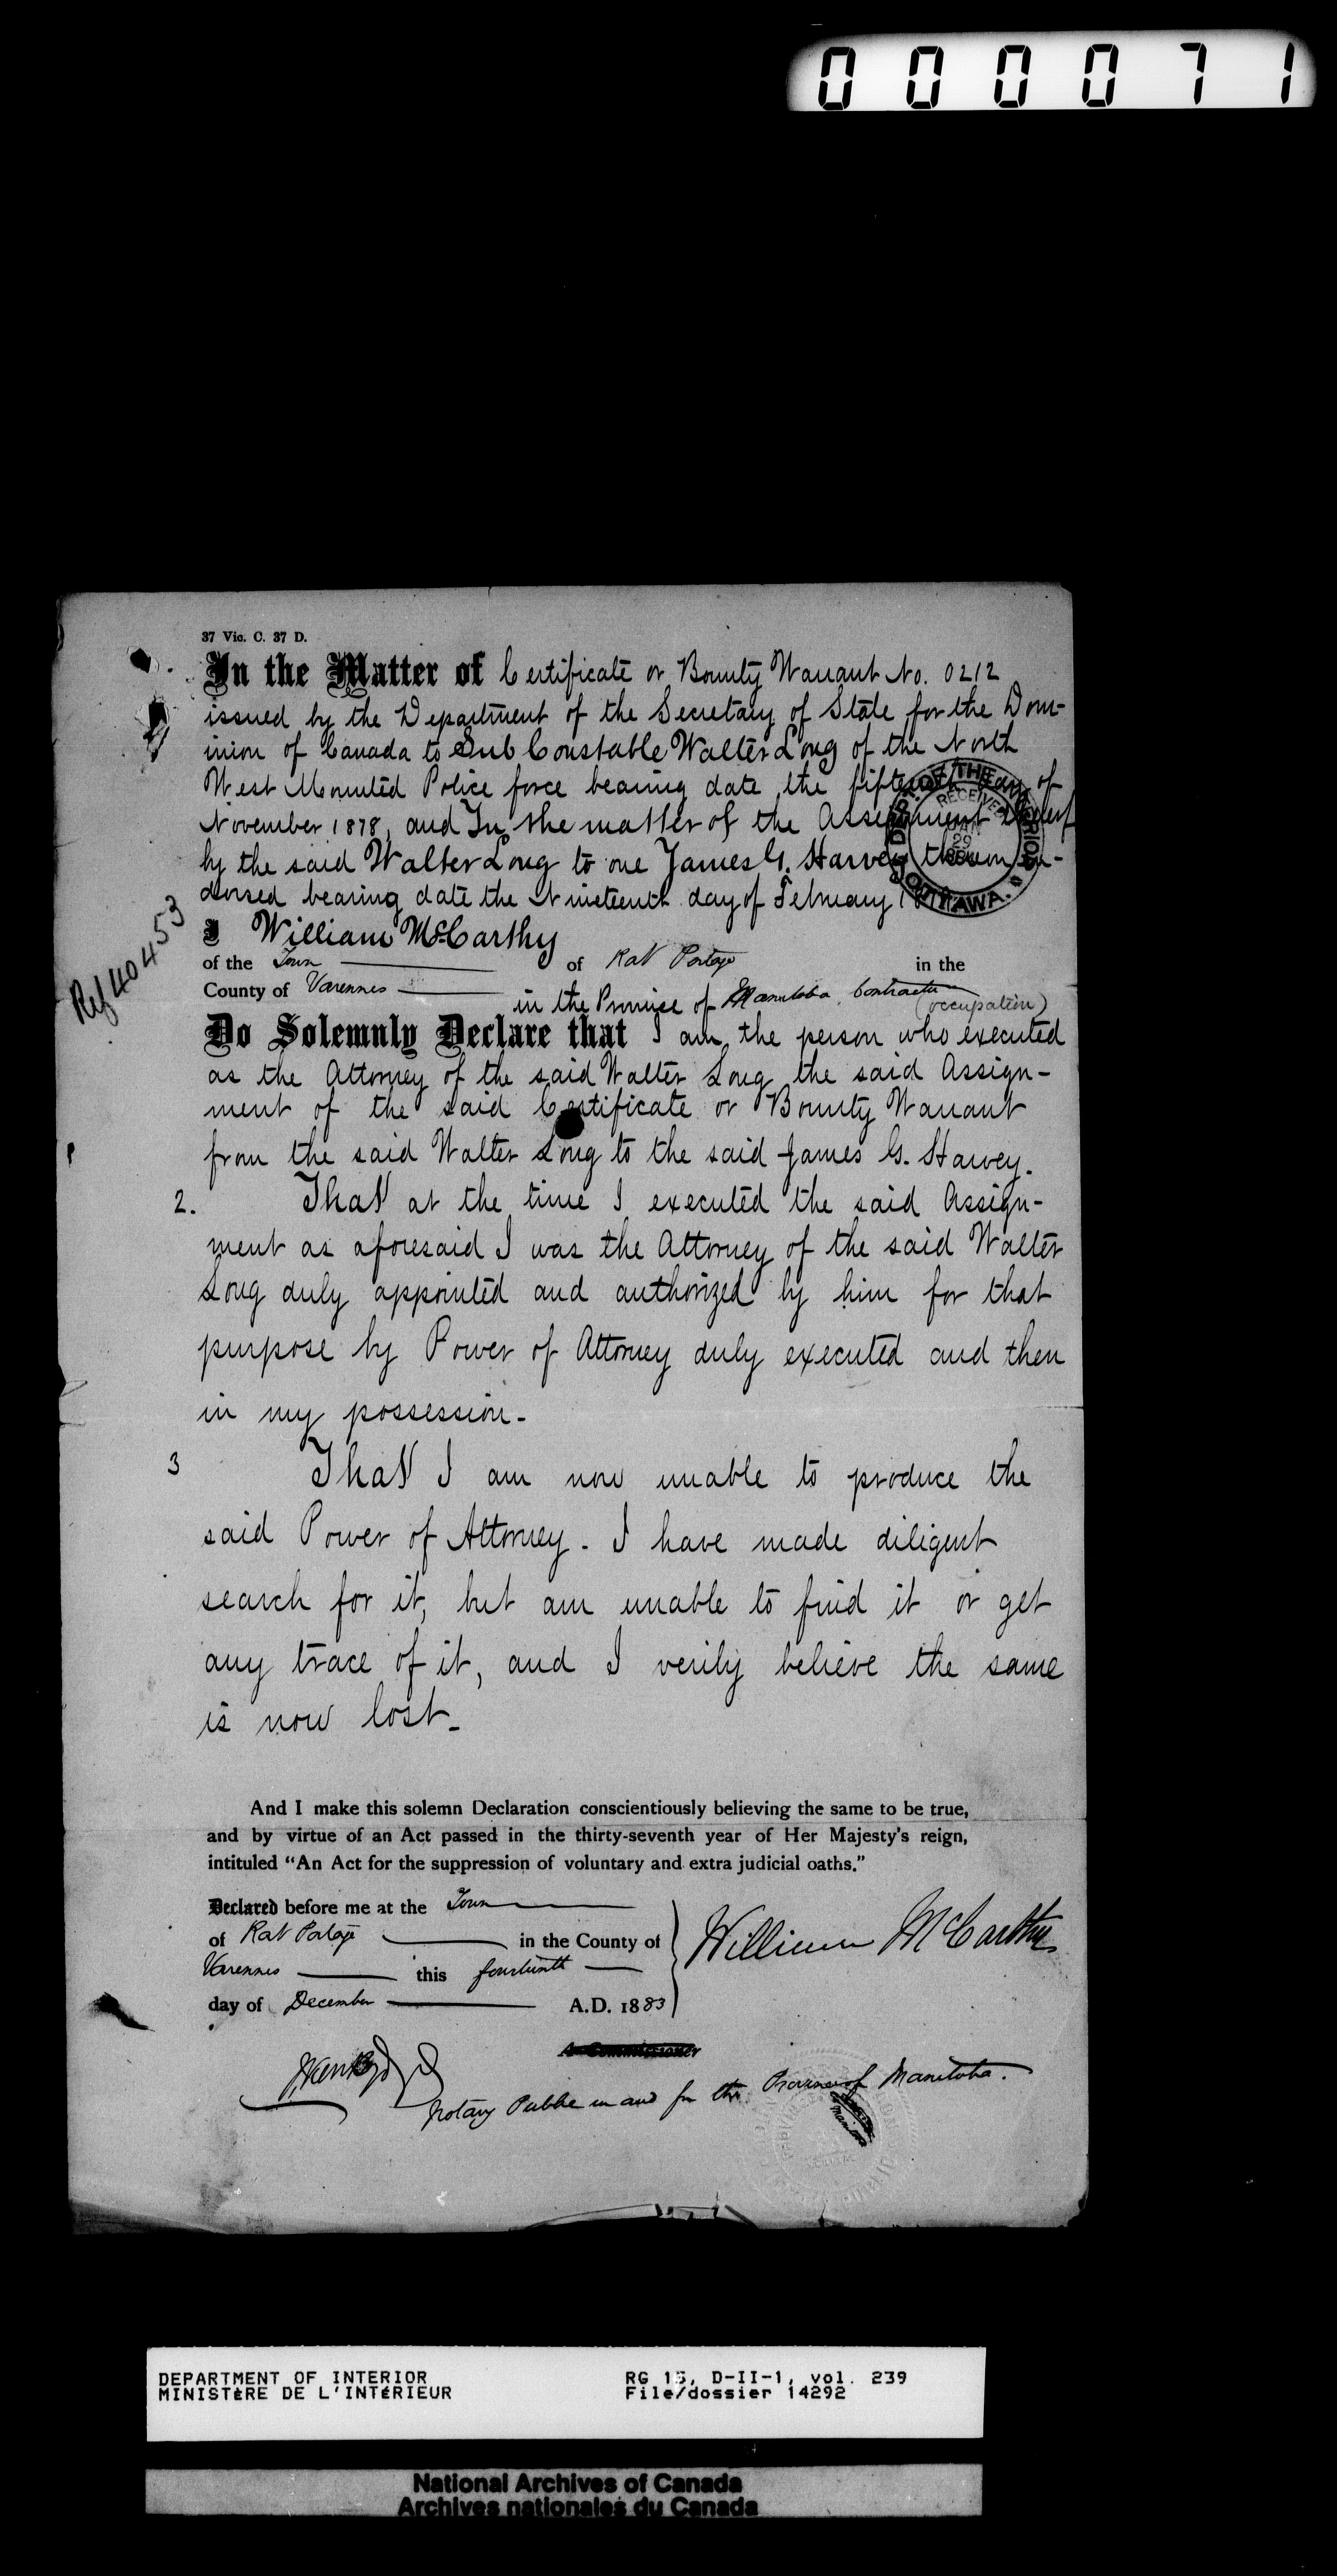 000071
37 Vic. C. 37 D.
In the Matter of Certificate or Bounty Warrant No. 0212
issued by the Department of the Secretary of State for the Dom-
inion of Canada to Sub Constable Walter Long of the North
West Mounted Police force bearing date the fifteenth day of
November 1878, and In the matter of the Assignment thereof
by the said Walter Long to one James G. Harvey thereon en-
dorsed bearing date the Nineteenth day of February
DEPT. OF THE INTERIOR
RECEIVED
JAN
29
OTTAWA.
Ref 40453
I William McCarthy
of the Town of Rat Portage in the
County of Varennes in the Province of Manitoba Contractor
(occupation)
Do Solemnly Declare that I am the person who executed
as the Attorney of the said Walter Long the said Assign-
ment of the said Certificate or Bounty Warrant
from the said Walter Long to the said James G. Harvey.
2. That at the time I executed the said Assign-
ment as aforesaid I was the Attorney of the said Walter
Long duly appointed and authorized by him for that
purpose by Power of Attorney duly executed and then
in my possession-
3 That I am now unable to produce the
said Power of Attorney. I have made diligent
search for it, but am unable to find it or get
any trace of it, and I verily believe the same
is now lost-
And I make this solemn Declaration conscientiously believing the same to be true,
and by virtue of an Act passed in the thirty-seventh year of Her Majesty's reign,
intituled "An Act for the suppression of voluntary and extra judicial oaths."
Declared before me at the Town
of Rat Portage in the County of
Varennes this fourteenth
day of December A.D. 1883
William McCarthy
A Commissioner
Notary Public in and for the Province of Manitoba.
DEPARTMENT OF INTERIOR
MINISTÈRE DE L'INTÉRIEUR
RG 15, D-II-1, vol. 239
File/dossier 14292
National Archives of Canada
Archives nationales du Canada